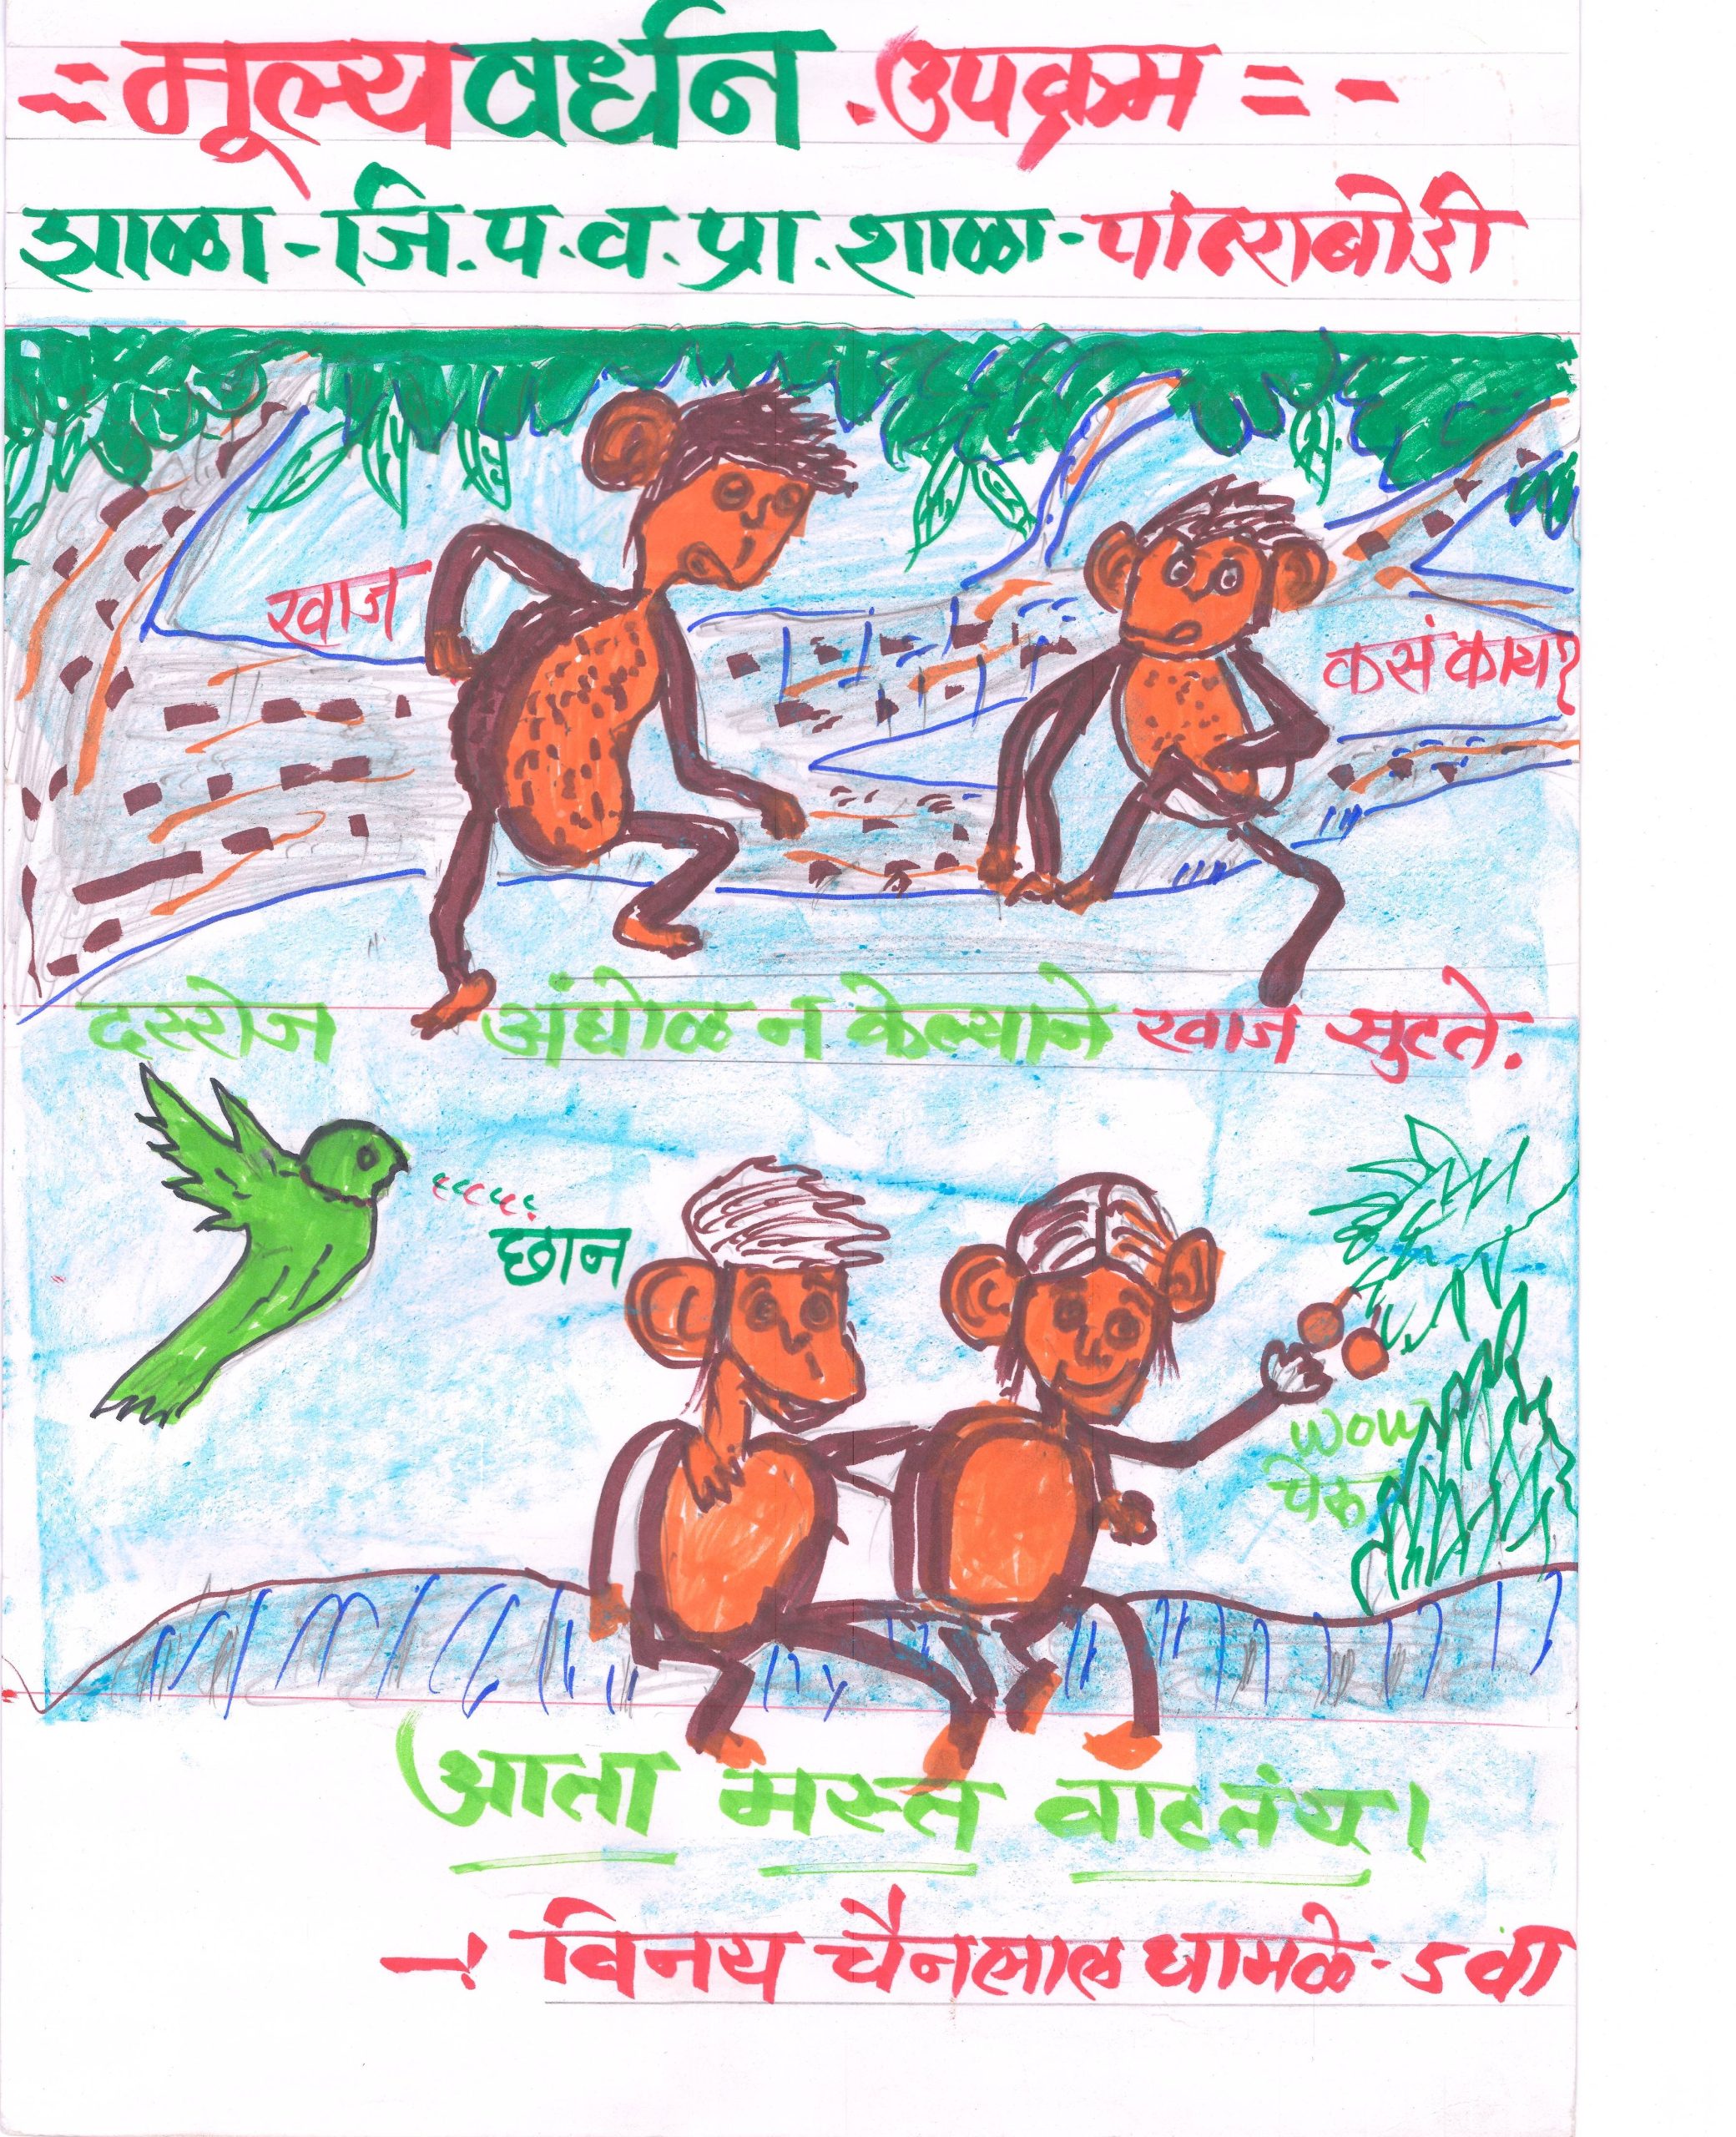 मूल्यवर्धन उपक्रम
झाळा-जि.प.व.प्रा.शाळा-पांढराबोडी
खाज
कसं काय?
दररोज अंघोळ न केल्याने खाज सुटते.
छान
wow
पेरू
आता मस्त वाटतंय।
विनय चैनलाल धामळे-5वी